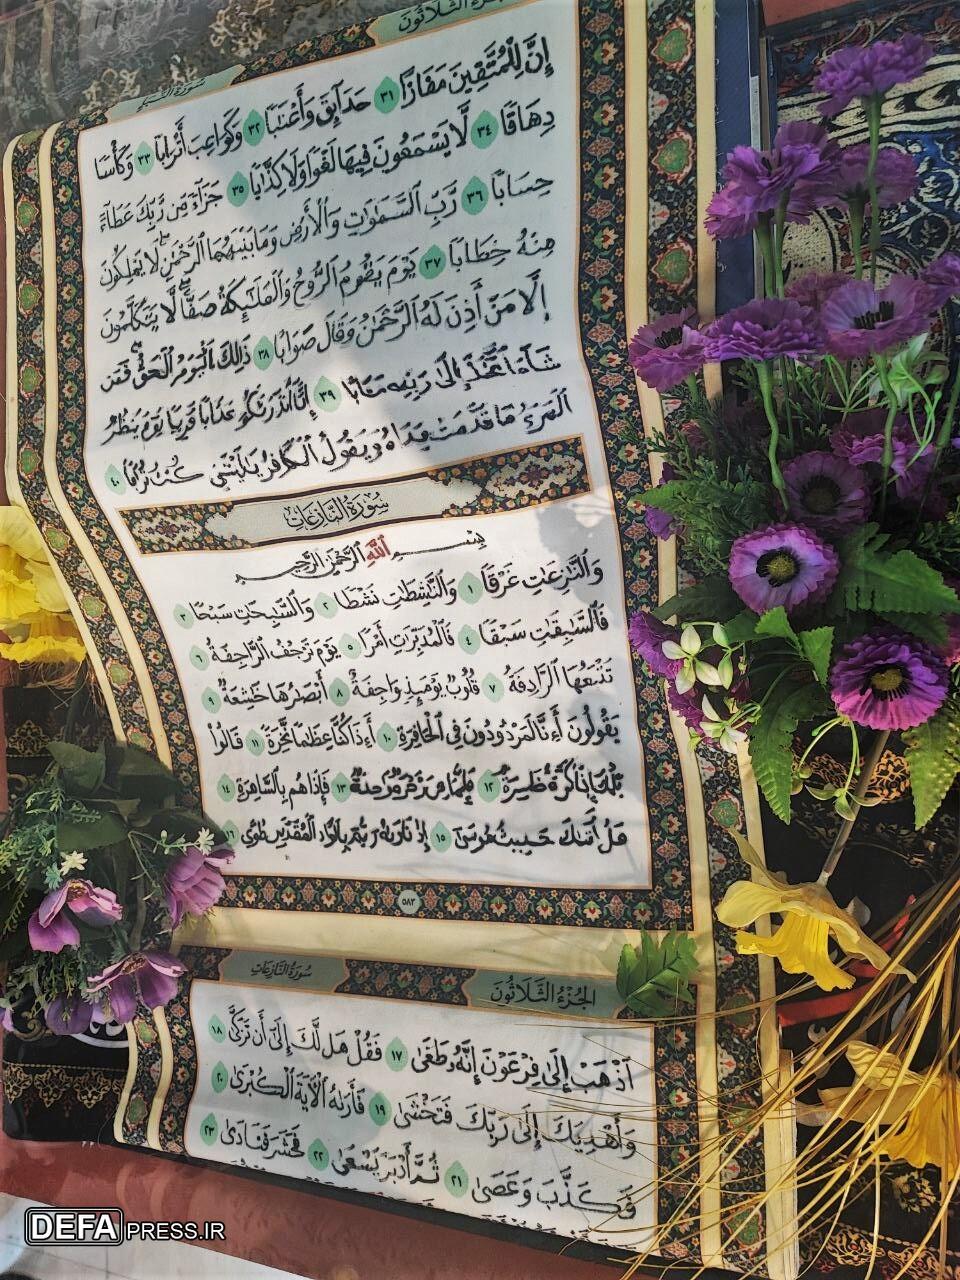 الجزء الثلاثون
سورة النبإ
إِنَّ لِلْمُتَّقِينَ مَفَازًا ٣١ حَدَآئِقَ وَأَعْنَٰبًا ٣٢ وَكَوَاعِبَ أَتْرَابًا ٣٣ وَكَأْسًا
دِهَاقًا ٣٤ لَّا يَسْمَعُونَ فِيهَا لَغْوًا وَلَا كِذَّٰبًا ٣٥ جَزَآءً مِّن رَّبِّكَ عَطَآءً
حِسَابًا ٣٦ رَّبِّ السَّمَٰوَٰتِ وَالْأَرْضِ وَمَا بَيْنَهُمَا الرَّحْمَٰنِ لَا يَمْلِكُونَ
مِنْهُ خِطَابًا ٣٧ يَوْمَ يَقُومُ الرُّوحُ وَالْمَلَٰٓئِكَةُ صَفًّا لَّا يَتَكَلَّمُونَ
إِلَّا مَنْ أَذِنَ لَهُ الرَّحْمَٰنُ وَقَالَ صَوَابًا ٣٨ ذَٰلِكَ الْيَوْمُ الْحَقُّ فَمَن
شَآءَ اتَّخَذَ إِلَىٰ رَبِّهِ مَـَٔابًا ٣٩ إِنَّآ أَنذَرْنَٰكُمْ عَذَابًا قَرِيبًا يَوْمَ يَنظُرُ
الْمَرْءُ مَا قَدَّمَتْ يَدَاهُ وَيَقُولُ الْكَافِرُ يَٰلَيْتَنِي كُنتُ تُرَٰبًا ٤٠
سُورَةُ النَّازِعَاتِ
بِسْمِ اللَّهِ الرَّحْمَٰنِ الرَّحِيمِ
وَالنَّٰزِعَٰتِ غَرْقًا ١ وَالنَّٰشِطَٰتِ نَشْطًا ٢ وَالسَّٰبِحَٰتِ سَبْحًا ٣
فَالسَّٰبِقَٰتِ سَبْقًا ٤ فَالْمُدَبِّرَٰتِ أَمْرًا ٥ يَوْمَ تَرْجُفُ الرَّاجِفَةُ ٦
تَتْبَعُهَا الرَّادِفَةُ ٧ قُلُوبٌ يَوْمَئِذٍ وَاجِفَةٌ ٨ أَبْصَٰرُهَا خَٰشِعَةٌ ٩
يَقُولُونَ أَءِنَّا لَمَرْدُودُونَ فِي الْحَافِرَةِ ١٠ أَءِذَا كُنَّا عِظَٰمًا نَّخِرَةً ١١ قَالُوا
تِلْكَ إِذًا كَرَّةٌ خَاسِرَةٌ ١٢ فَإِنَّمَا هِيَ زَجْرَةٌ وَٰحِدَةٌ ١٣ فَإِذَا هُم بِالسَّاهِرَةِ ١٤
هَلْ أَتَىٰكَ حَدِيثُ مُوسَىٰ ١٥ إِذْ نَادَىٰهُ رَبُّهُ بِالْوَادِ الْمُقَدَّسِ طُوًى ١٦
٥٨٣
الجُزْءُ الثَّلَاثُونَ
سُورَةُ النَّازِعَاتِ
اذْهَبْ إِلَىٰ فِرْعَوْنَ إِنَّهُ طَغَىٰ ١٧ فَقُلْ هَل لَّكَ إِلَىٰٓ أَن تَزَكَّىٰ ١٨
وَأَهْدِيَكَ إِلَىٰ رَبِّكَ فَتَخْشَىٰ ١٩ فَأَرَىٰهُ الْآيَةَ الْكُبْرَىٰ ٢٠
فَكَذَّبَ وَعَصَىٰ ٢١ ثُمَّ أَدْبَرَ يَسْعَىٰ ٢٢ فَحَشَرَ فَنَادَىٰ ٢٣
DEFAPRESS.IR